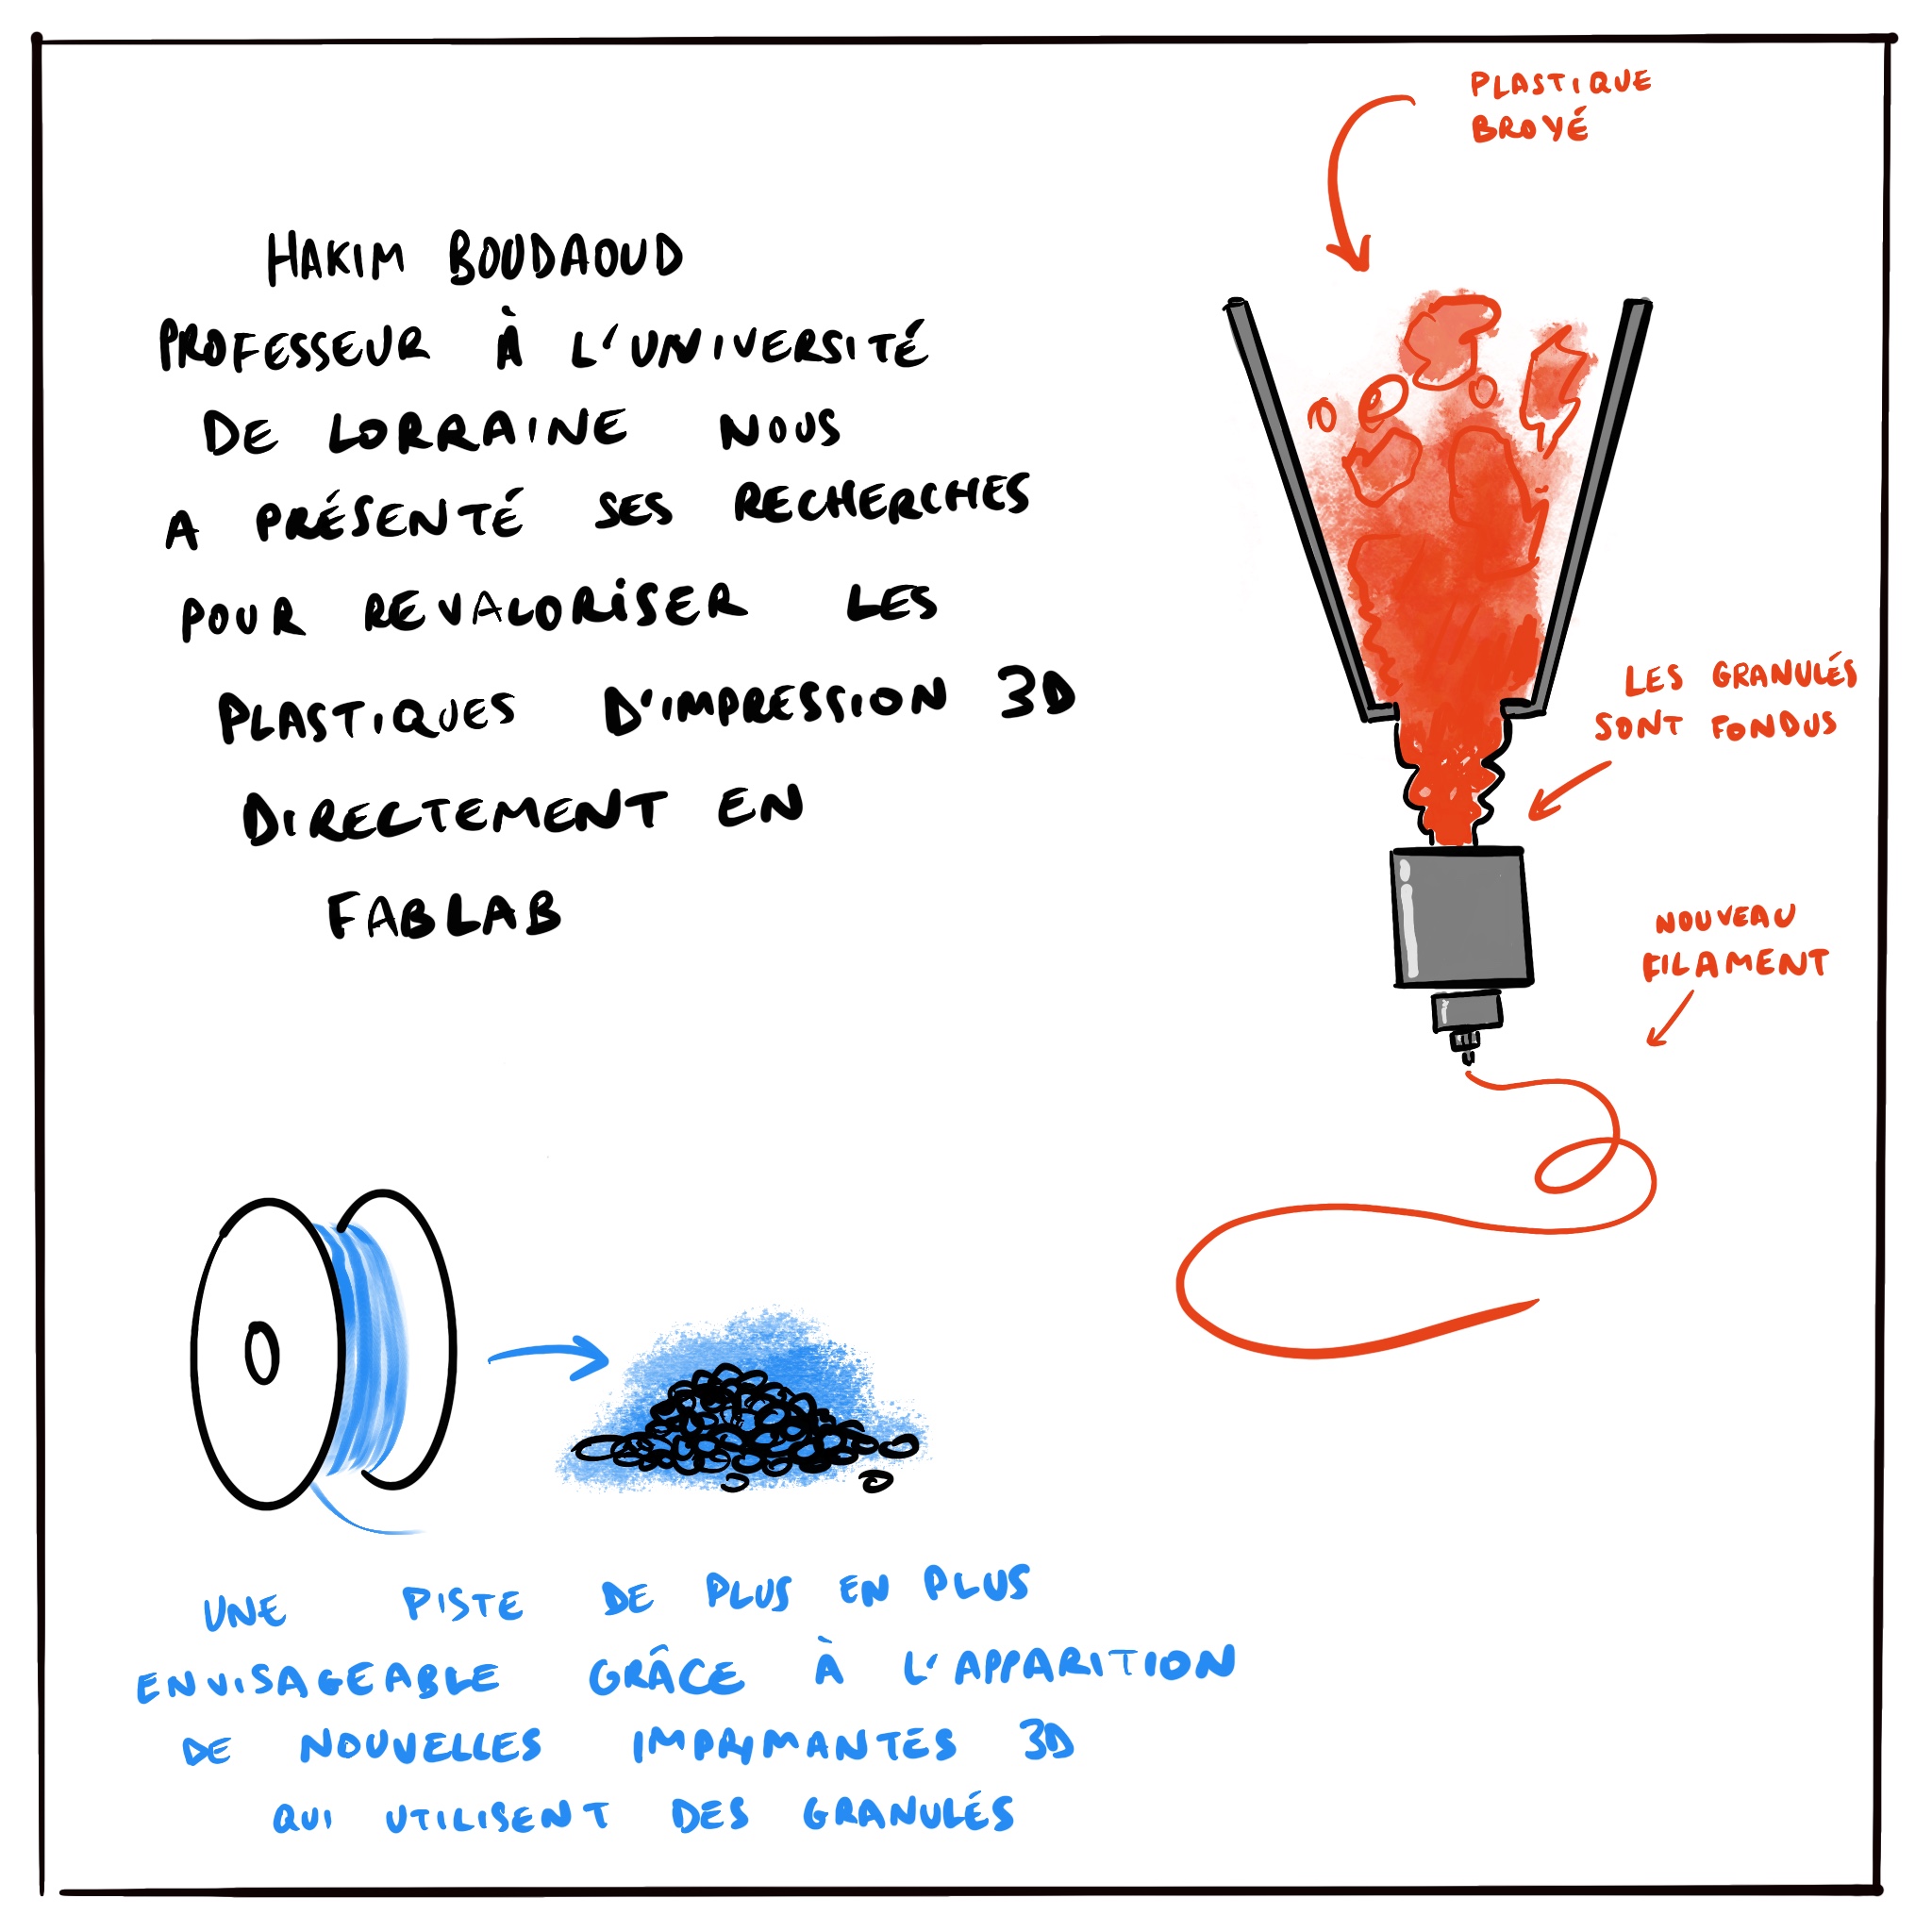 HAKIM BOUDAOUD
PROFESSEUR À L'UNIVERSITÉ
DE LORRAINE NOUS
A PRÉSENTÉ SES RECHERCHES
POUR REVALORISER LES
PLASTIQUES D'IMPRESSION 3D
DIRECTEMENT EN
FABLAB
PLASTIQUE
BROYÉ
LES GRANULÉS
SONT FONDUS
NOUVEAU
FILAMENT
UNE PISTE DE PLUS EN PLUS
ENVISAGEABLE GRÂCE À L'APPARITION
DE NOUVELLES IMPRIMANTES 3D
QUI UTILISENT DES GRANULÉS